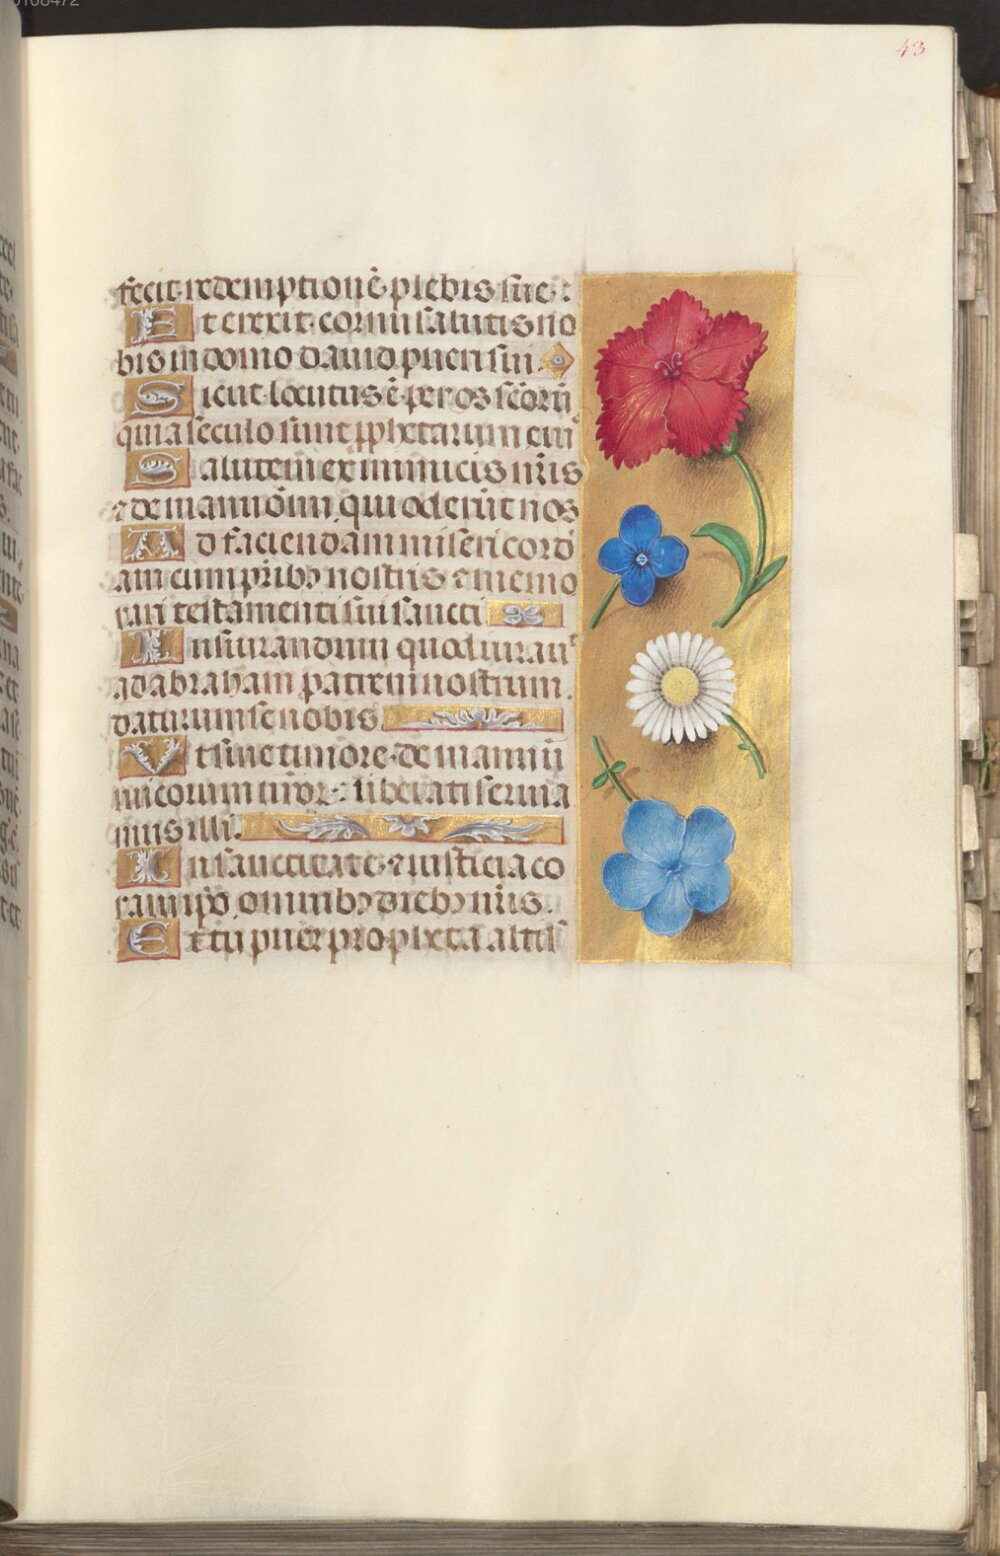 43
fecit redemptionē plebis sue:
Et erexit cornu salutis no
bis in domo dauid pueri sui.
Sicut locutus ē per os scōrū
qui a seculo sunt pphetarum eius
Salutem ex inimicis nr̄is
et de manu ōm̄ qui oderūt nos
Ad faciendam misericordi
am cum pr̄ibꝫ nostris et memo
rari testamenti sui sancti
Iusiurandum quod iurauit
ad abraham patrem nostrum.
daturum se nobis
Vt sine timore de manu in
imicorum nr̄or: liberati seruia
mus illi.
In sanctitate et iusticia co
ram ipō omnibꝫ diebꝫ nr̄is.
Et tu puer propheta altiss